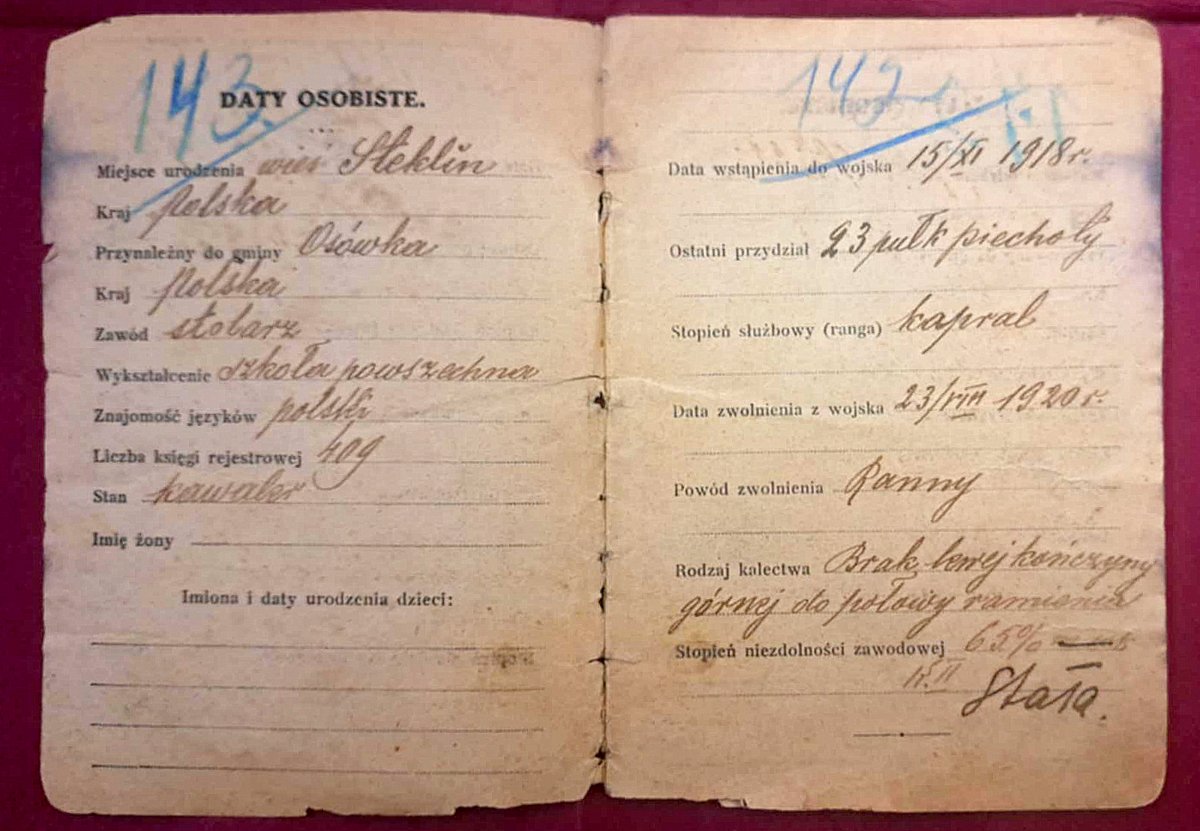 143.
DATY OSOBISTE.
Miejsce urodzenia wieś Steklin
Kraj Polska
Przynależny do gminy Osówka
Kraj Polska
Zawód stolarz
Wykształcenie szkoła powszechna
Znajomość języków polski
Liczba księgi rejestrowej 409
Stan kawaler
Imię żony
Imiona i daty urodzenia dzieci:
142
Data wstąpienia do wojska 15/XI 1918 r.
Ostatni przydział 23 pułk piechoty
Stopień służbowy (ranga) kapral
Data zwolnienia z wojska 23/VIII 1920 r.
Powód zwolnienia Ranny
Rodzaj kalectwa Brak lewej kończyny
górnej do połowy ramienia
Stopień niezdolności zawodowej 65%
Stała.